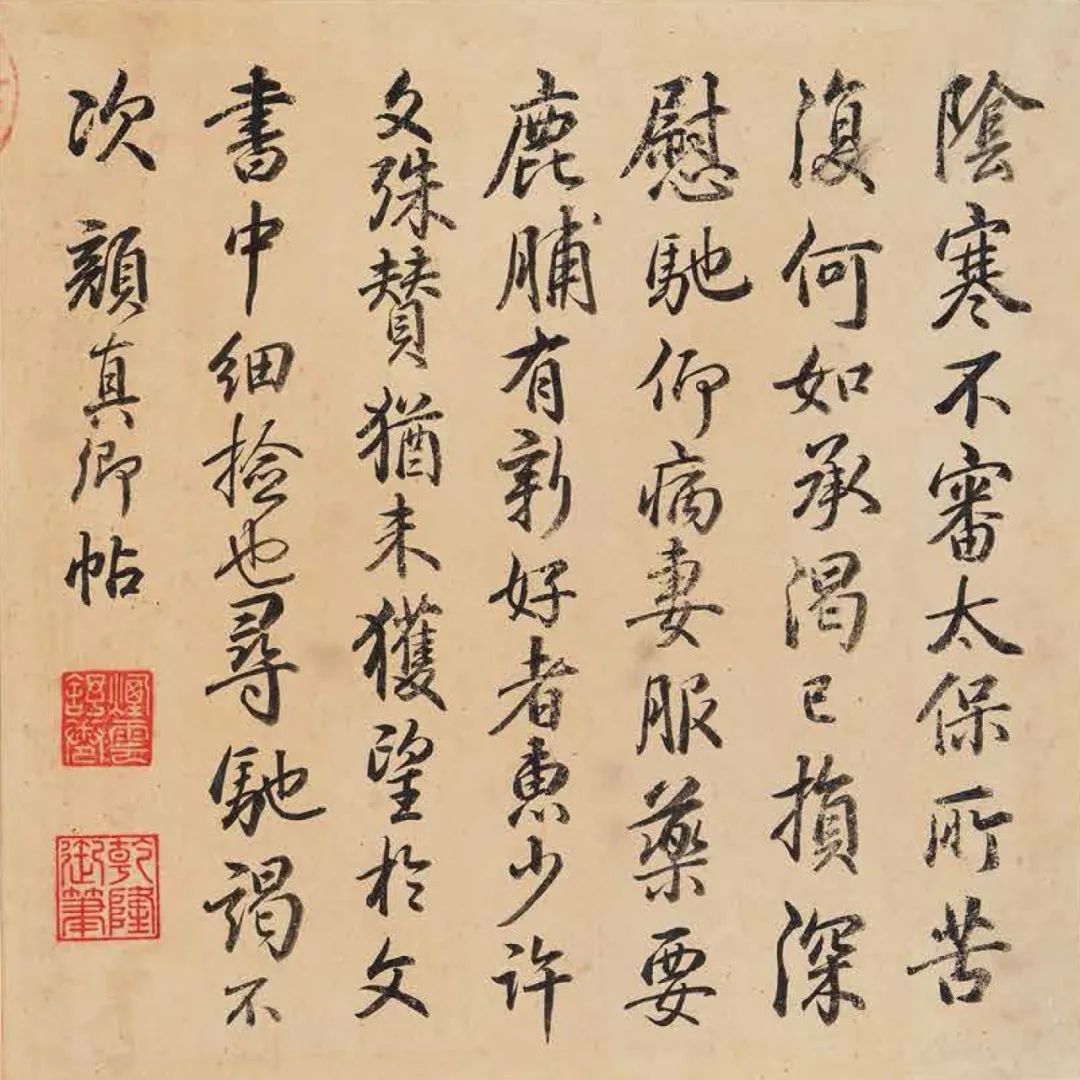 陰寒不審太保所苦
復何如承渴已損深
慰馳仰病妻服藥要
鹿脯有新好者惠少許
文殊贊猶未獲望於文
書中細撿也尋馳謁不
次顏真卿帖
乾隆御筆